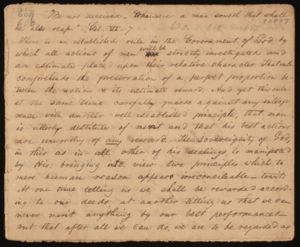 "Be not deceived, Whatsoever a man soweth that shall
he also reap." Gal. VI. 7
There is an established rule in the Government of God by
which all actions of men will be strictly investigated and an
estimate placed upon their relative character that
comprehends the preservation of a perfect proportion be-
tween the action & its ultimate reward. And yet this rule
at the same time carefully guards against any interfer-
ence with another well established principle, that man
is utterly destitute of merit and that his best action
are unworthy of any reward. The Sovereignty of God
in this as in all other of his dealings is manifested
by His bringing into view two principles which to
mere human reason appear irreconcilable truths
At one time telling us we shall be rewarded accord-
ing to our deeds, at another telling us that we can
never merit anything by our best performances
but that after all we can do, we are to be regarded as